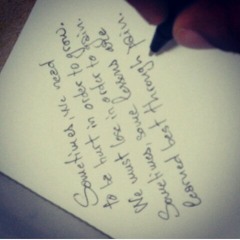 Sometimes, we need
to be hurt in order to grow.
We must lose in order to gain.
Sometimes, some lessons are
learned best through pain.